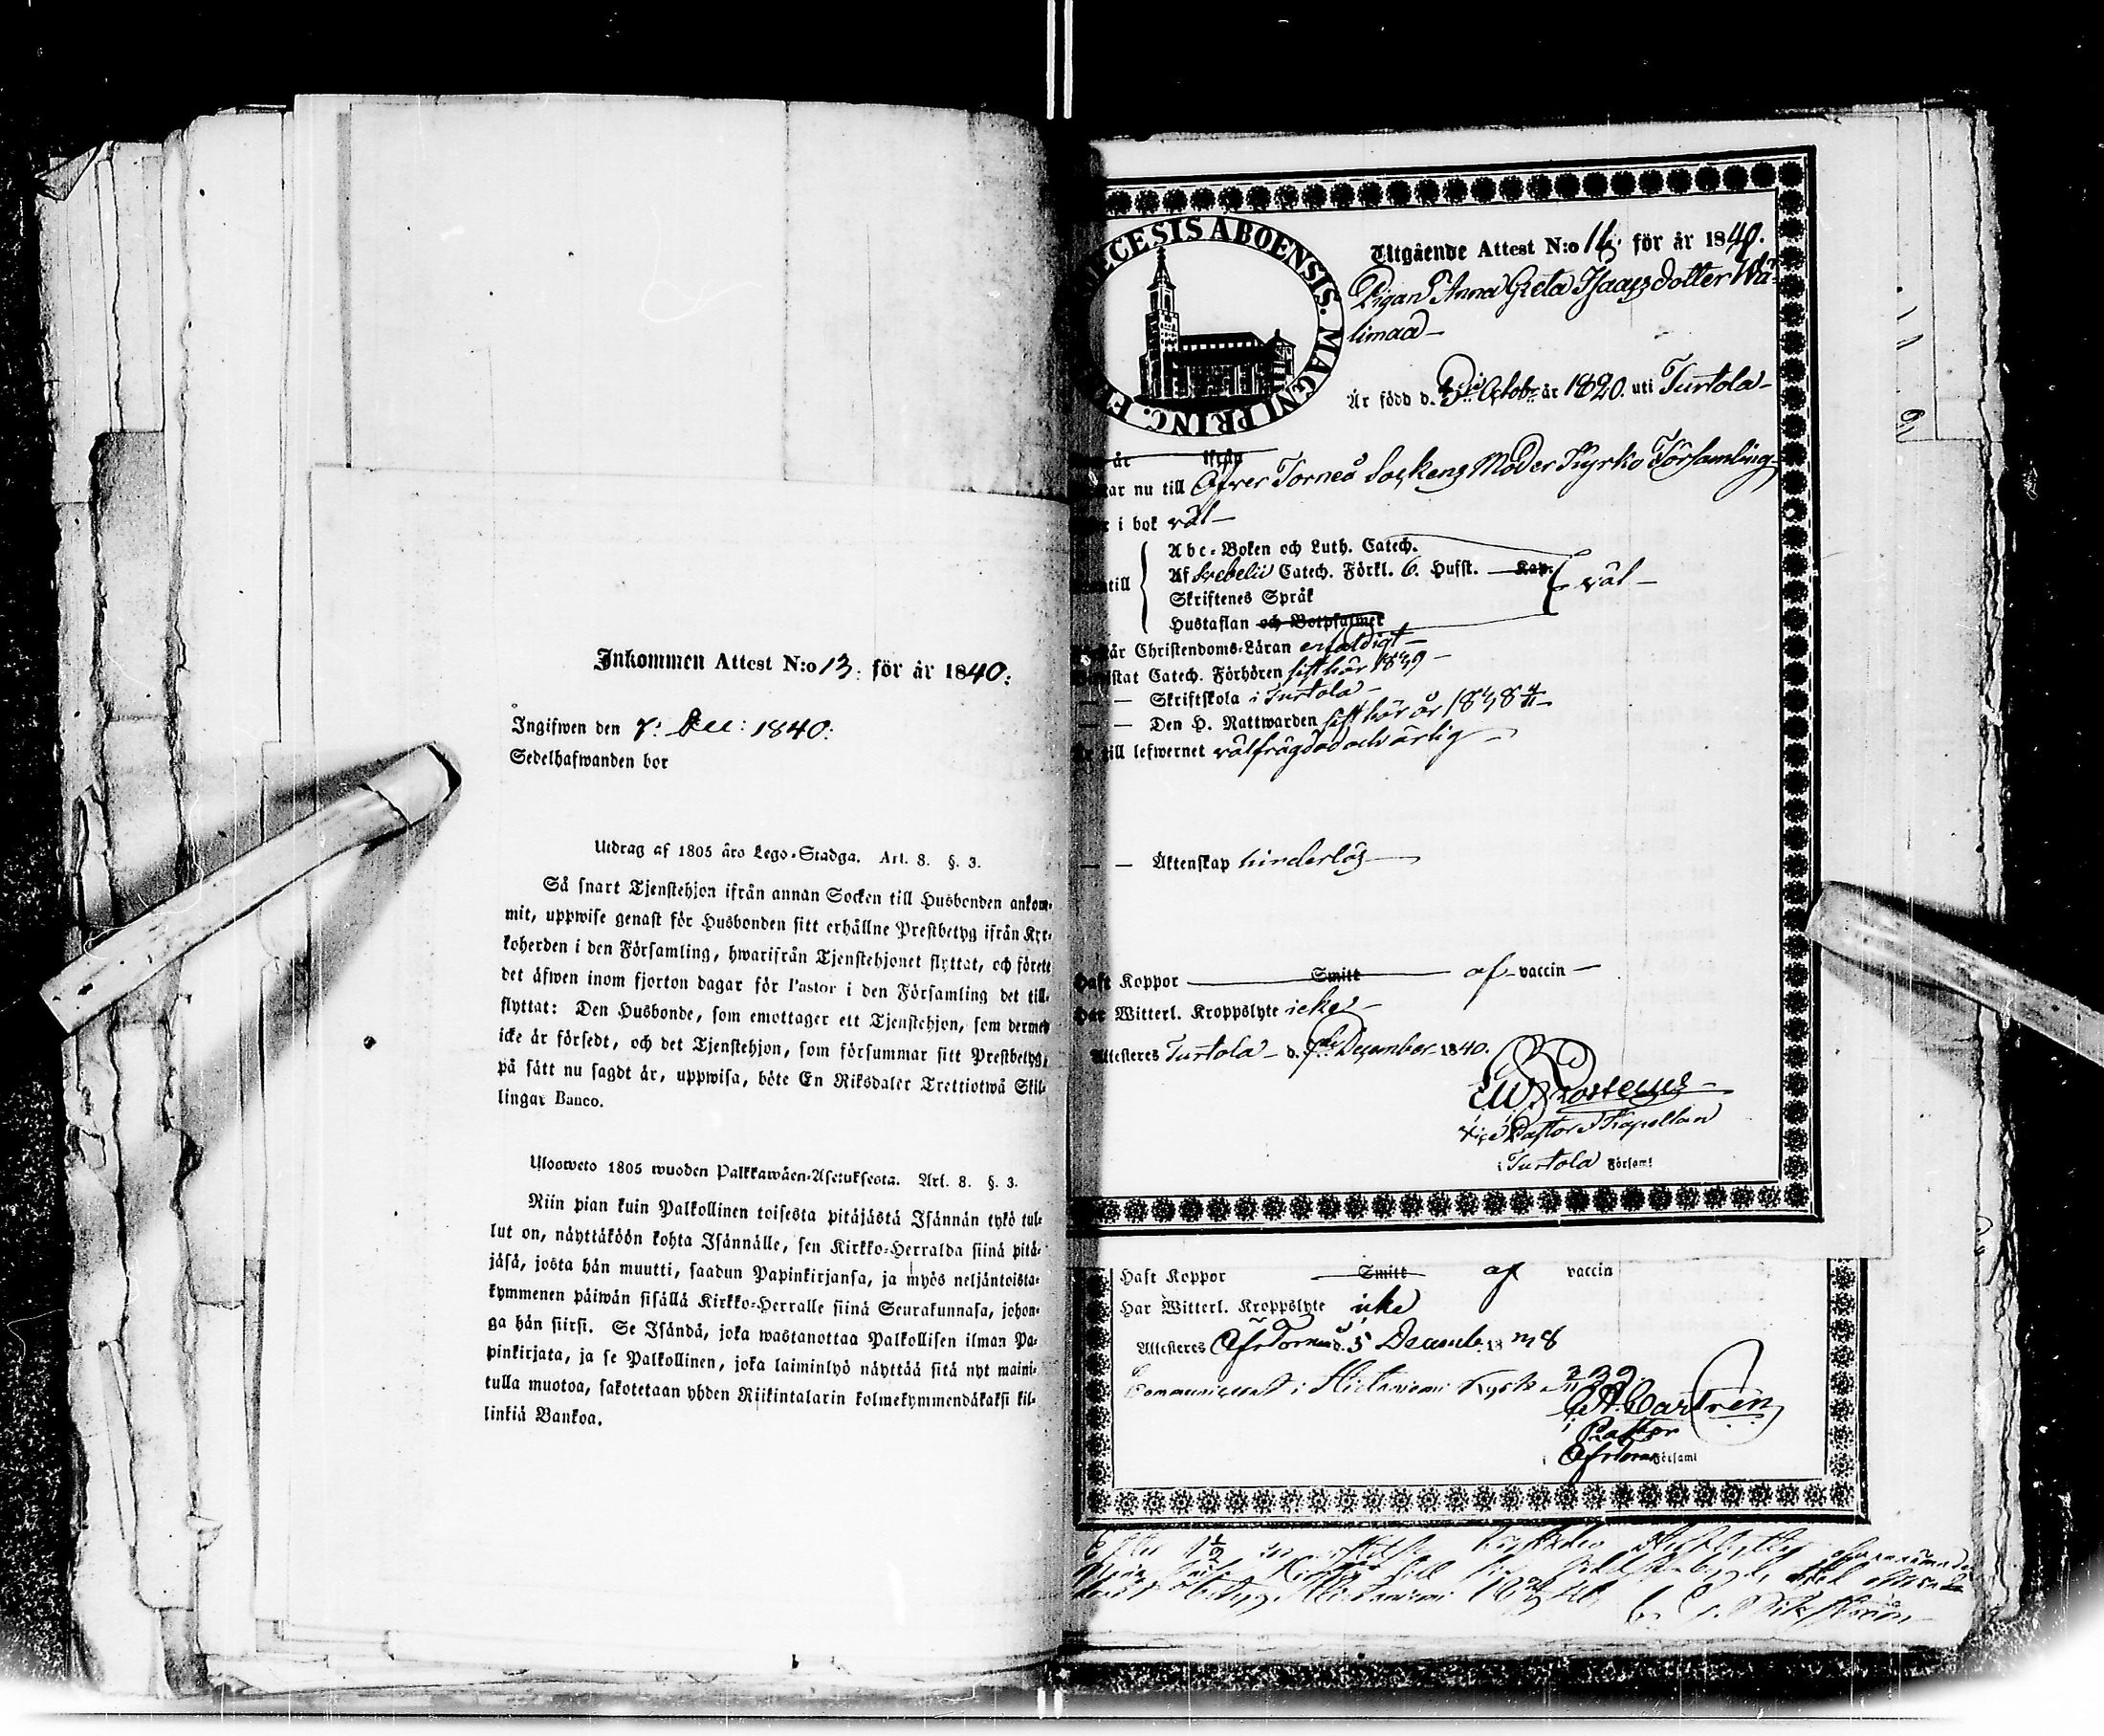 Inkommen Attest N:o 13. för år 1840.
Ingifwen den 7. Dec: 1840.
Sedelhafwanden bor
Utdrag af 1805 års Lego-Stadga. Art. 8. §. 3.
Så snart Tjenstehjon ifrån annan Socken till Husbonden ankom-
mit, uppwise genast för Husbonden sitt erhållne Prestbetyg ifrån Kyr-
koherden i den Församling, hwarifrån Tjenstehjonet flyttat, och förete
det äfwen inom fjorton dagar för Pastor i den Församling det till-
flyttat: Den Husbonde, som emottager ett Tjenstehjon, som dermed
icke är försedt, och det Tjenstehjon, som försummar sitt Prestbetyg,
på sätt nu sagdt är, uppwisa, böte En Riksdaler Trettiotwå Skil-
lingar Banco.
Ulosweto 1805 wuoden Palkkawäen-Asetuksesta. Art. 8. §. 3.
Niin pian kuin Palkollinen toisesta pitäjästä Isännän tykö tul-
lut on, näyttäköön kohta Isännälle, sen Kirkko-Herralda siinä pitä-
jäsä, josta hän muutti, saadun Papinkirjansa, ja myös neljäntoista-
kymmenen päiwän sisällä Kirkko-Herralle siinä Seurakunnasa, johon-
ga hän siirsi. Se Isändä, joka wastanottaa Palkollisen ilman Pa-
pinkirjata, ja se Palkollinen, joka laiminlyö näyttää sitä nyt maini-
tulla muotoa, sakotetaan yhden Riikintalarin kolmekymmendäkaksi kil-
linkiä Bankoa.
ECESIS ABOENSIS. MAGNI PRINC. F
Utgående Attest N:o 16. för år 1840.
Pigan Anna Greta Isaacsdotter Wä-
limaa
Är född d. 3die Octobr år 1820. uti Turtola
år ifrån
nu till Öfver Torneå Sockens Moder Kyrko Församling
i bok väl
Abc-Boken och Luth. Catech.
Af Svebelii Catech. Förkl. 6. Hufst. Kap.
till väl
Skriftenes Språk
Hustaflan och Botpsalmer
Christendoms-Läran enfaldigt
Catech. Förhören sist här 1839
— — Skriftskola i Turtola
— — Den H. Nattwarden sist här år
till lefwernet välfrägdad och ärlig
— — Äktenskap hinderlös
Haft Koppor Smitt af vaccin
Har Witterl. Kroppslyte icke
Attesteres Turtola d. 7de December 1840.
Vice Pastor Kapellan
i Turtola Församl
Haft Koppor Smitt af vaccin
Har Witterl. Kroppslyte icke
Attesteres ÖfrTorneå d. 5 Decemb. 1838
i Hietaniemi
Castrén
Pastor
i Församl